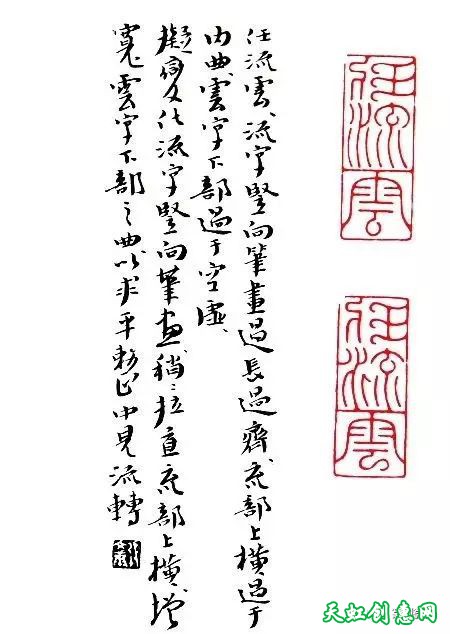 任流雲、流字竪向筆畫過長過齊底部上橫過于
内曲、雲字下部過于空虛、
擬任流字竪向筆畫稍〻拉直底部上橫、增
寬雲字下部之曲以求平整中見流轉
任流雲
任流雲
天虹创意网